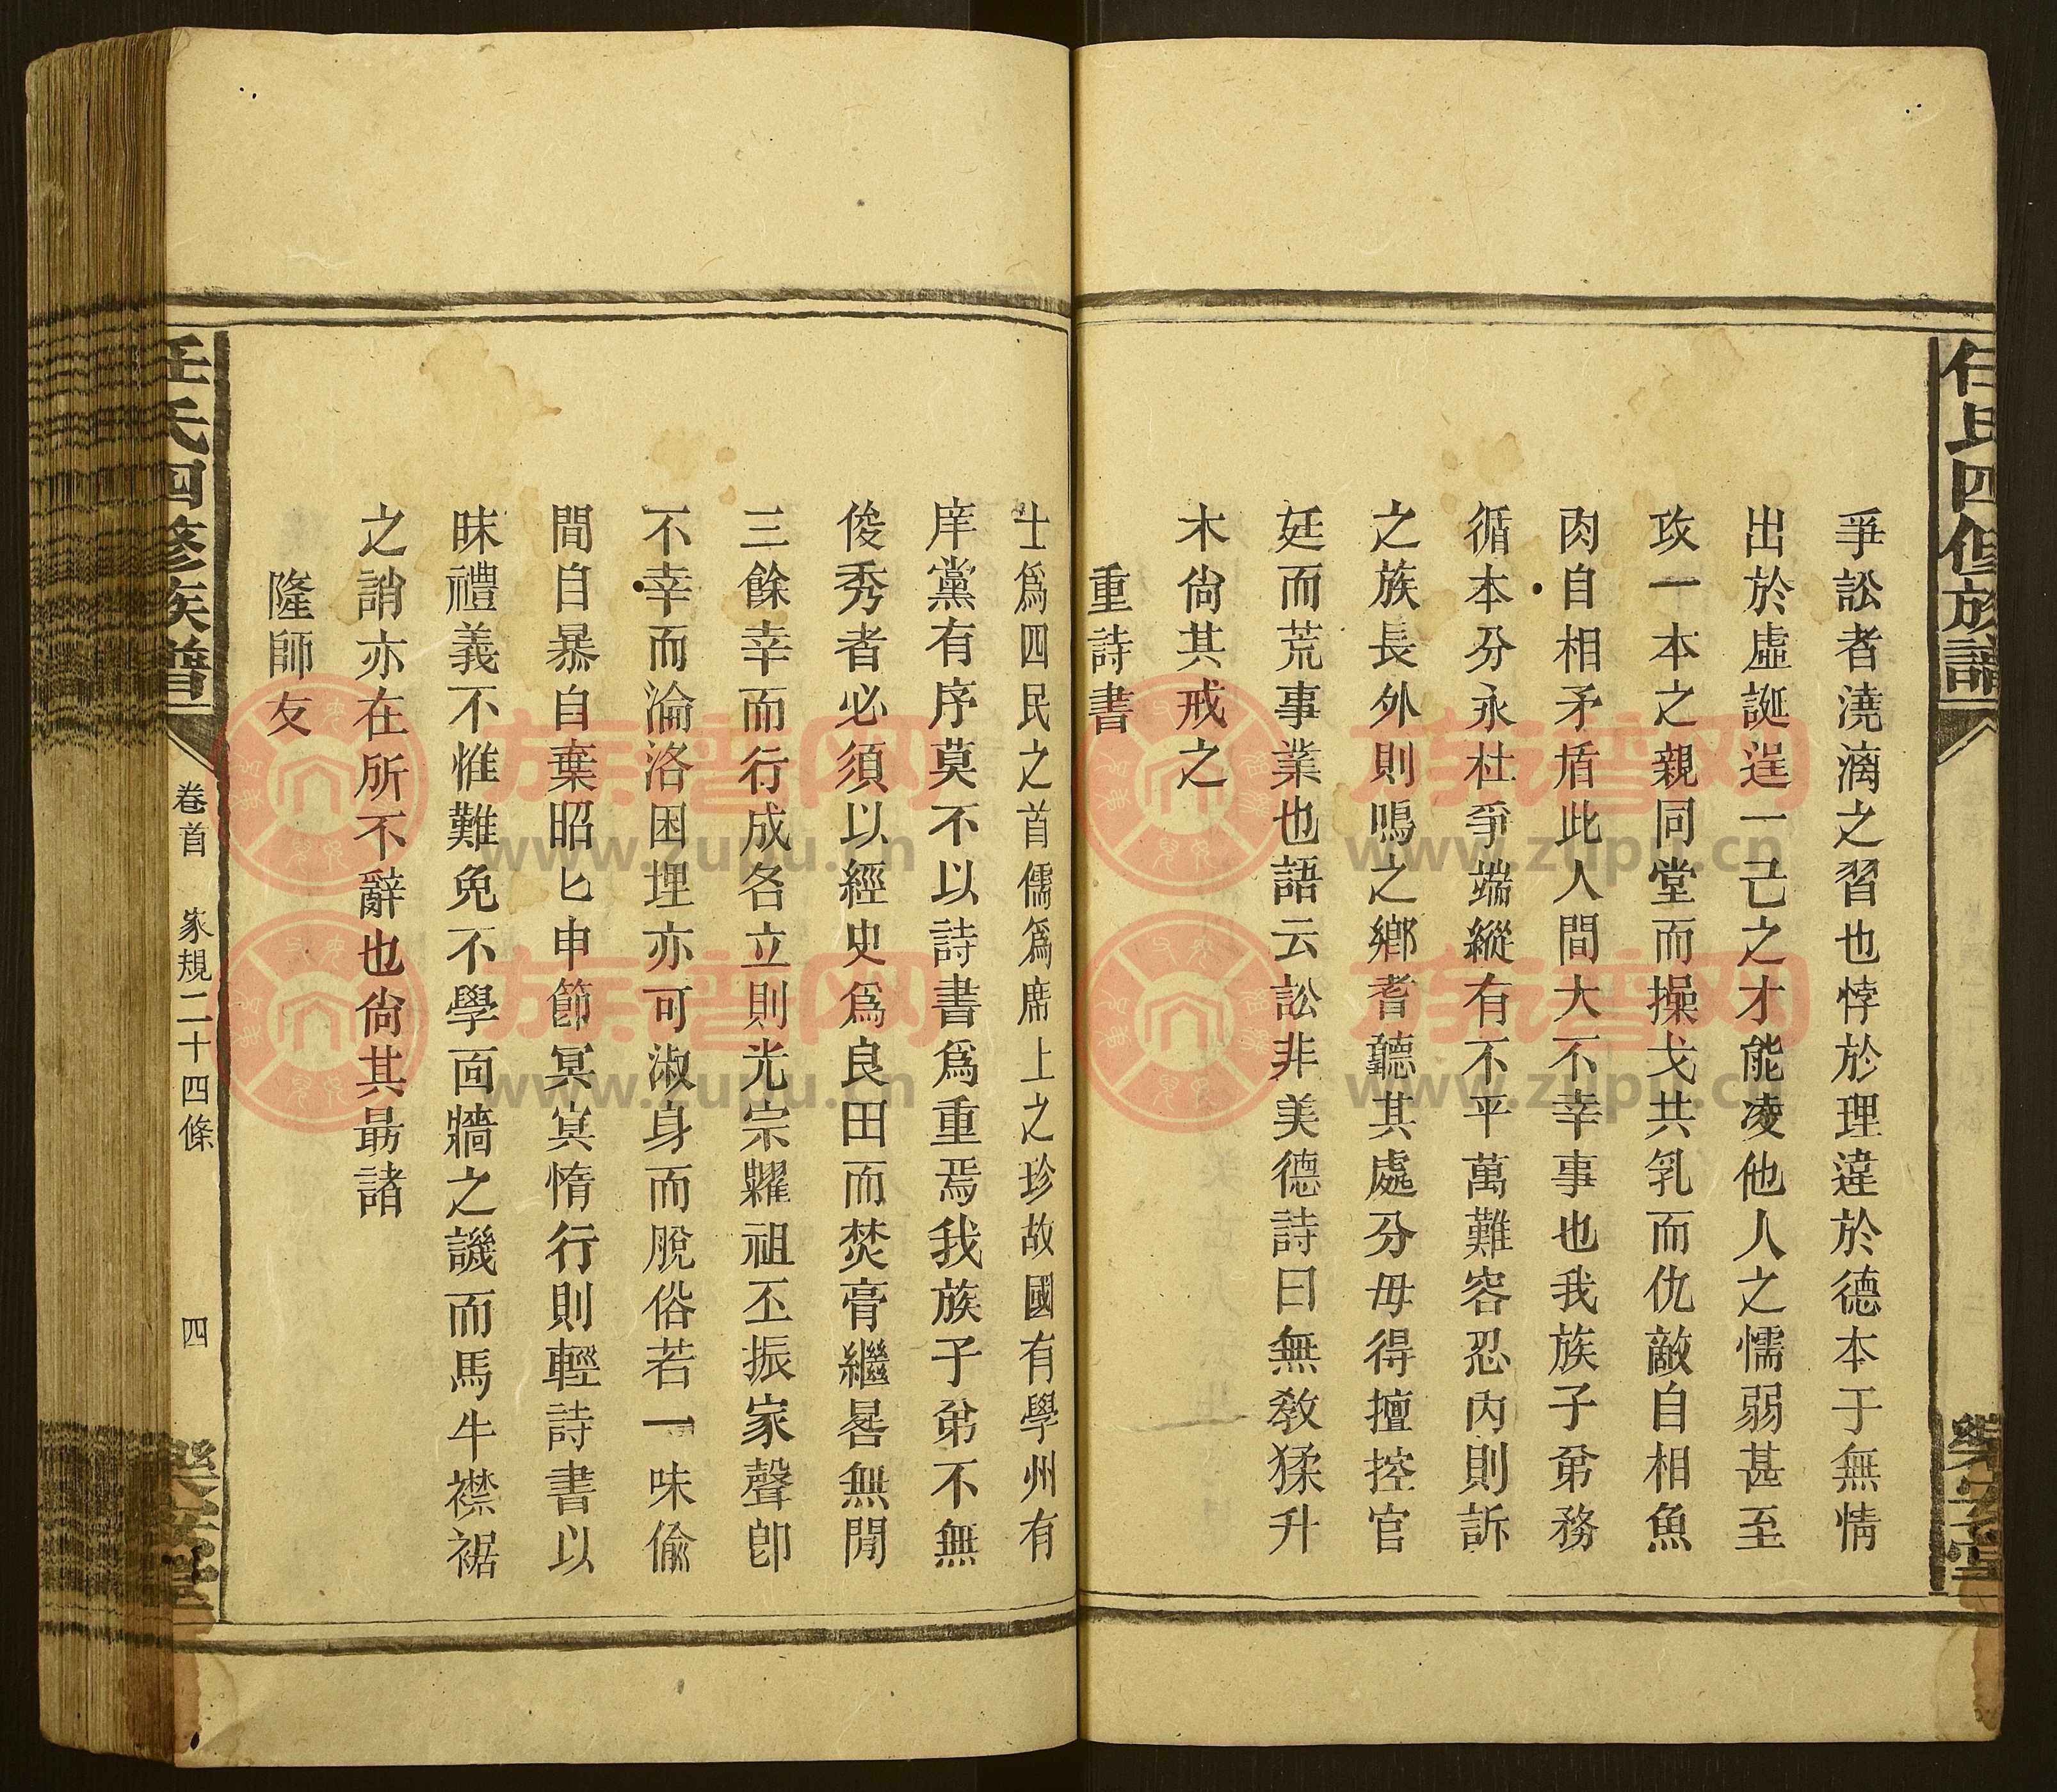 任氏四修族譜
爭訟者澆漓之習也悖於理違於德本于無情
出於虛誕逞一己之才能凌他人之懦弱甚至
攻一本之親同堂而操戈共乳而仇敵自相魚
肉自相矛盾此人間大不幸事也我族子弟務
循本分永杜爭端縱有不平萬難容忍內則訴
之族長外則鳴之鄉耆聽其處分毋得擅控官
廷而荒事業也語云訟非美德詩曰無教猱升
木尙其戒之
重詩書
士爲四民之首儒爲席上之珍故國有學州有
庠黨有序莫不以詩書爲重焉我族子弟不無
俊秀者必須以經史爲良田而焚膏繼晷無閒
三餘幸而行成名立則光宗耀祖丕振家聲卽
不幸而淪洛困埋亦可淑身而脫俗若一味偷
間自暴自棄昭匕申節冥冥惰行則輕詩書以
昧禮義不惟難免不學面牆之譏而馬牛襟裾
之誚亦在所不辭也尙其勗諸
隆師友
任氏四修族譜
卷首 家規二十四條 四
樂安堂
族譜网
www.zupu.cn